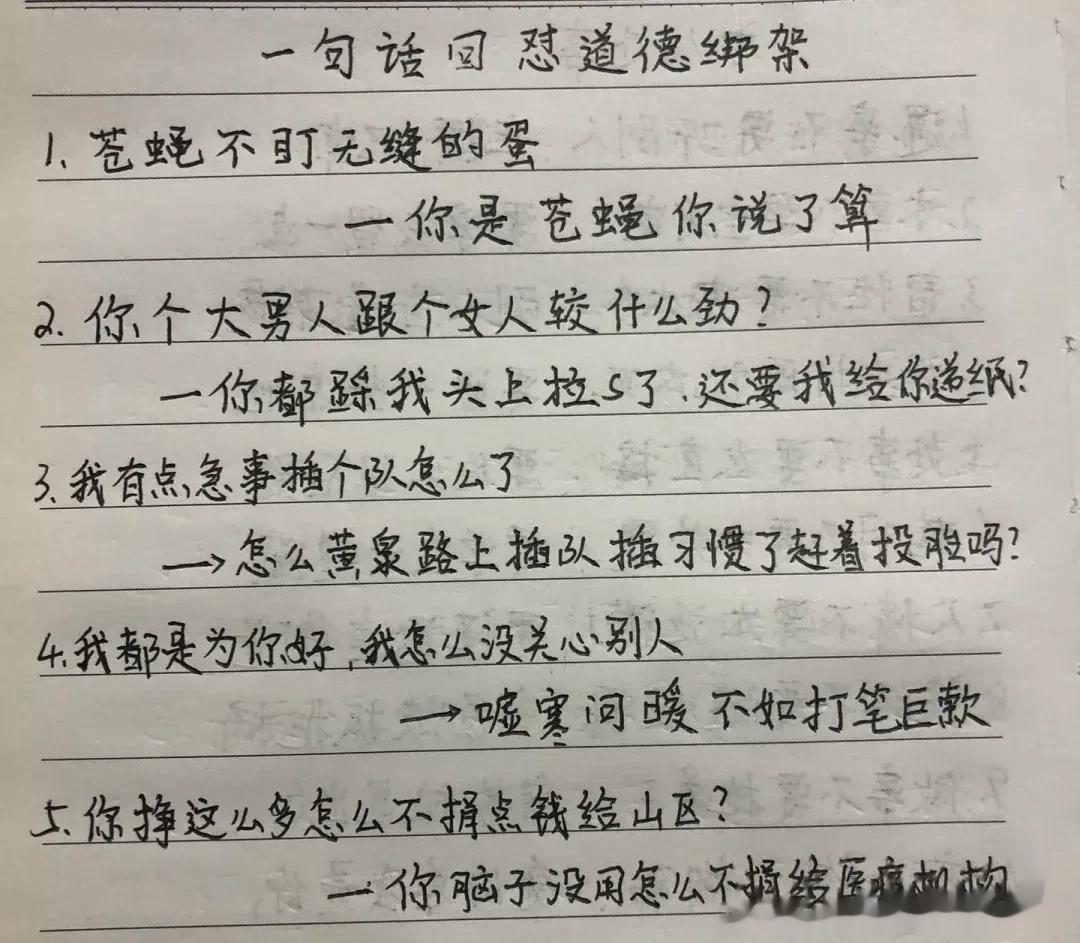 一句话回怼道德绑架
1、苍蝇不盯无缝的蛋
一你是苍蝇你说了算
2.你个大男人跟个女人较什么劲?
一你都踩我头上拉S了、还要我给你递纸?
3、我有点急事插个队怎么了
→怎么黄泉路上插队插习惯了赶着投胎吗?
4、我都是为你好,我怎么没关心别人
→嘘寒问暖不如打笔巨款
5、你挣这么多怎么不捐点钱给山区?
一你脑子没用怎么不捐给医疗机构